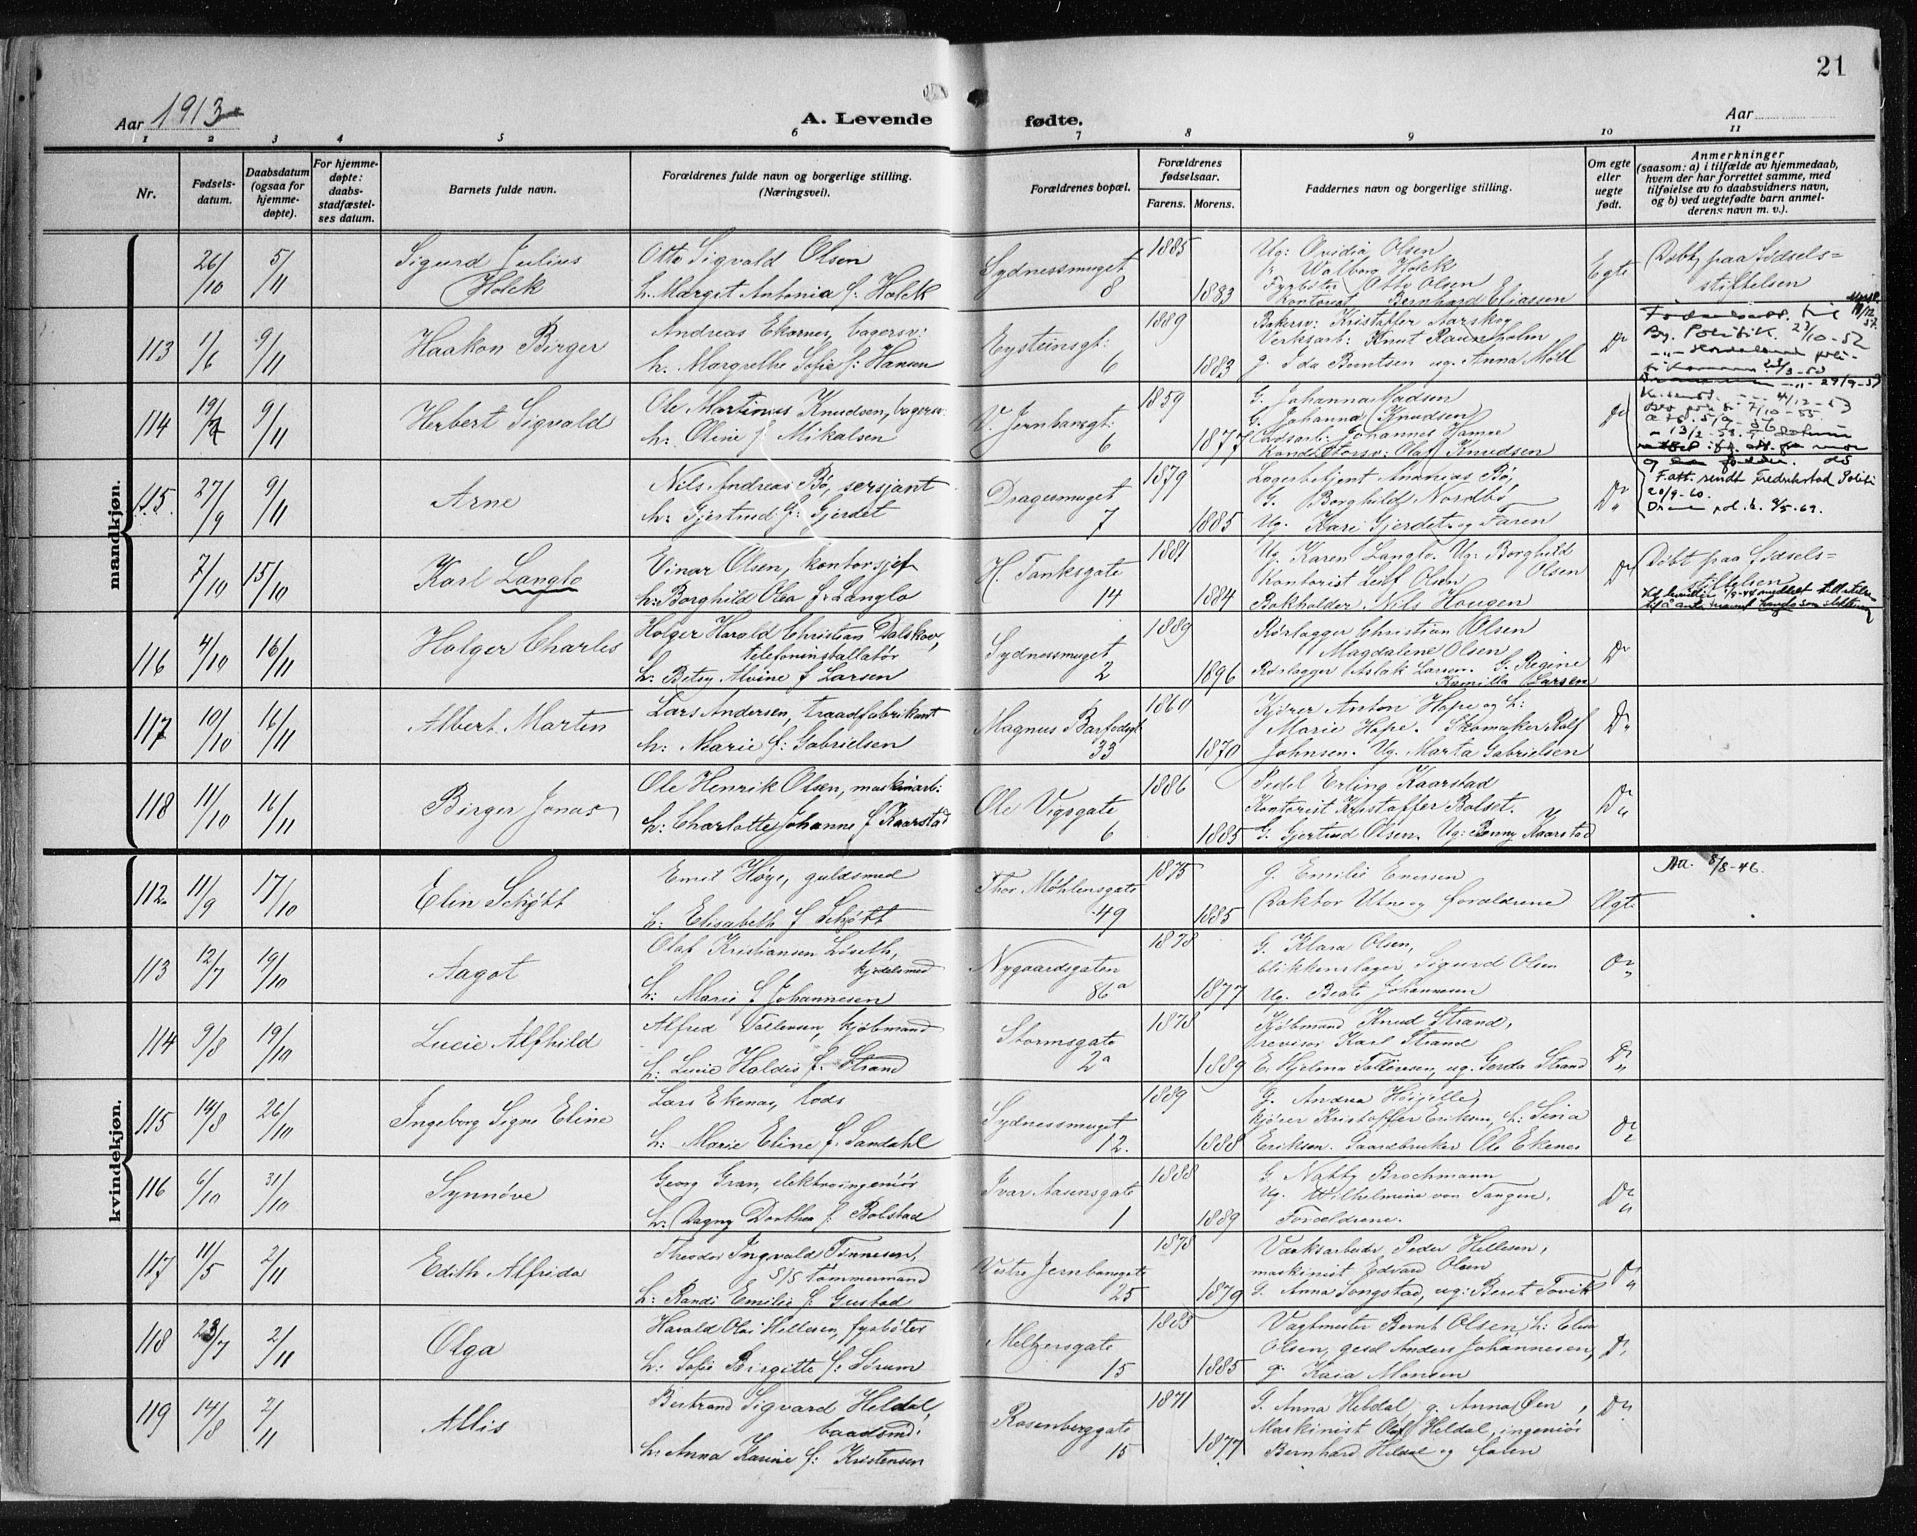 21
Aar 1913
A. Levende fødte.
Aar
1 2 3 4 5 6 7 8 9 10 11
Nr.
Fødsels-
datum.
Daabsdatum
(ogsaa for
hjemme-
døpte).
For hjemme-
døpte:
daabs-
stadfæstel-
ses datum.
Barnets fulde navn.
Forældrenes fulde navn og borgerlige stilling.
(Næringsvei).
Forældrenes bopæl.
Forældrenes
fødselsaar.
Farens. Morens.
Faddernes navn og borgerlige stilling.
Om egte
eller
uegte
født.
Anmerkninger
(saasom: a) i tilfælde av hjemmedaab,
hvem der har forrettet samme, med
tilføielse av to daabsvidners navn,
og b) ved uegtefødte barn anmel-
derens navn m. v.).
mandkjøn.
26/10 5/11
Sigurd Julius
Holck
Otto Sigvald Olsen
h. Margit Antonia f: Holck
Sydnessmuget
8
1885
1883
Ug: Ovidia Olsen
Walborg Holck
Fyrbøter Otto Olsen
Kontorist Bernhard Eliassen
Egte
Døbt paa Fødsels=
stiftelsen
113 1/6 9/11
Haakon Birger
Andreas Ekornes, bagersv:
h. Margrethe Sofie f: Hansen
Eysteinsgt:
6
1889
1883
Bakersv: Kristoffer Aarskog
Verksarb: Knut Raunholm
g. Ida Berntsen ug. Anna Moll
Do
By. Politik 23/10-52
114 19/7 9/11
Herbert Sigvald
Ole Martinus Knudsen, bagersv.
h. Oline f. Mikalsen
V. Jernbanegt:
6
1859
1877
G. Johanna Madsen
G. Johanna Knudsen
Johannes Hamre
Olaf Knudsen
Do
4/12-53
7/10-55
115. 27/9 9/11
Arne
Nils Andreas Bø, sersjant
h. Gjertrud f: Gjerdet
Dragesmuget
7
1879
1885
Lagerbetjent Ananias Bø,
G. Borghild Nordbø
Ug. Kari Gjerdet og Faren
Do
Fatt. sendt Fredrikstad Politi
20/9-60.
7/10 15/10
Karl Langlo
Einar Olsen, kontorsjef
h: Borghild Olea f. Langlo
H. Tanksgate
14
1881
1884
Ug. Karen Langlo. Ug: Borghild
Olsen
Kontorist Leif Olsen
Bokholder Nils Hougen
Do
Døbt paa Fødsels=
stiftelsen
116 4/10 16/11
Holger Charles
Holger Harald Christian Dalskov,
telefoninstallatør
h. Betsy Alvine f Larsen
Sydnessmuget
2
1889
1896
Rørlægger Christian Olsen
Magdalene Olsen
Rørlægger Aslak Larsen. G. Regine
Kamilla Larsen
Do
117 10/10 16/11
Albert Martin
Lars Andersen, traadfabrikant
h. Marie f: Gabrielsen
Magnus Barfodsgt
33
1860
1870
Kjører Anton Hope og h:
Marie Hope. Skomaker Rolf
Johnsen. Ug. Marta Gabrielsen
Do
118 11/10 16/11
Birger Jonas
Ole Henrik Olsen, maskinarb:
h. Charlotte Johanne f. Kaarstad
Ole Vigsgate
6
1886
1885
Pedel Erling Kaarstad
Kontorist Kristoffer Rolset.
G. Gjertrud Olsen. Ug: Kaarstad
Do
kvindekjøn.
112. 11/9 17/10
Elin Schøtt
Emil Høye, guldsmed
h. Elisabeth f Schøtt
Thor Møhlensgate
49
1875
1885
g. Emilie Enersen
Doktor Utne og forældrene
Egt:
8/8-46.
113 12/7 19/10
Aagot
Olaf Kristiansen Løseth,
kjedelsmed
h. Marie f. Johannesen
Nygaardsgaten
86a
1878
1877
G. Klara Olsen,
blikkenslager Sigurd Olsen
ug. Beate Johannesen
Do
114 9/8 19/10
Lucie Alfhild
Alfred Tollevsen, kjøbmand
h. Lucie Haldis f. Strand
Stormsgate
2a
1878
1889
Kjøbmand Knud Strand,
revisor Karl Strand
E. Hjelma Tollevsen, ug. Gerda Strand
Do
115 14/8 26/10
Ingeborg Signe Eline
Lars Ekenæs, lods
h. Marie Eline f. Sandahl
Sydnessmuget
12.
1889
1888
G. Andrea Høijelle
kjører Kristoffer Eriksen, h. Sina
Eriksen. Gaardbruker Ole Ekenes
Do
116 6/10 31/10
Synnøve
Georg Gran, elektroingeniør
h. Dagny Dorthea f. Bolstad
Ivar Aasensgate
1
1888
1889
G. Natty Brochmann
Ug. Wilhelmine von Tangen,
Forældrene.
Do
117 11/5 2/11
Edith Alfrida
Theodor Ingvald Tønnesen,
tømmermand
h. Randi Emilie f. Gustad
Vestre Jernbanegate
25
1878
1879
Værksarbeider Peder Hellesen,
maskinist Edvard Olsen
g. Anna Songstad, ug: Beret Tovik
Do
118 23/7 2/11
Olga
Harald Olai Hellesen, fyrbøter
h: Sofie Birgitte f: Strum
Meltzersgate
15
1885
1885
Vagtmester Bernt Olsen, h. Elise
Olsen, gesel Anders Johannesen,
g. Kaia Monsen
Do
119 14/8 2/11
Allis
Bertrand Sigvard Heldal,
baadsmd:
h. Anna Karine f: Kristensen
Rosenberggate
15
1871
1877
G. Anna Heldal g. Anna Øen,
Maskinist Olaf Heldal, ingeniør
Bernhard Heldal og faren
Do